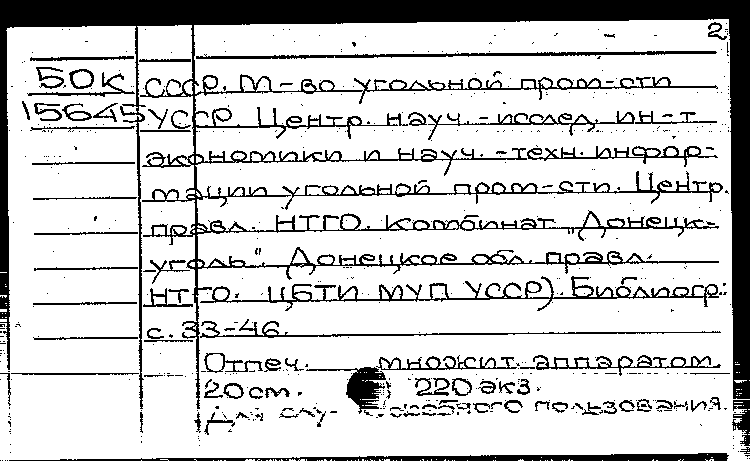 2
50К СССР. М-во угольной пром-сти
15645 УССР. Центр. науч.-исслед. ин-т
экономики и науч.-техн. инфор-
мации угольной пром-сти. Центр.
правл. НТГО. Комбинат „Донецк-
уголь". Донецкое обл. правл.
НТГО. ЦБТИ МУП УССР). Библиогр.:
с. 33-46.
Отпеч. множит. аппаратом.
20 см. 220 экз.
Для пользования.